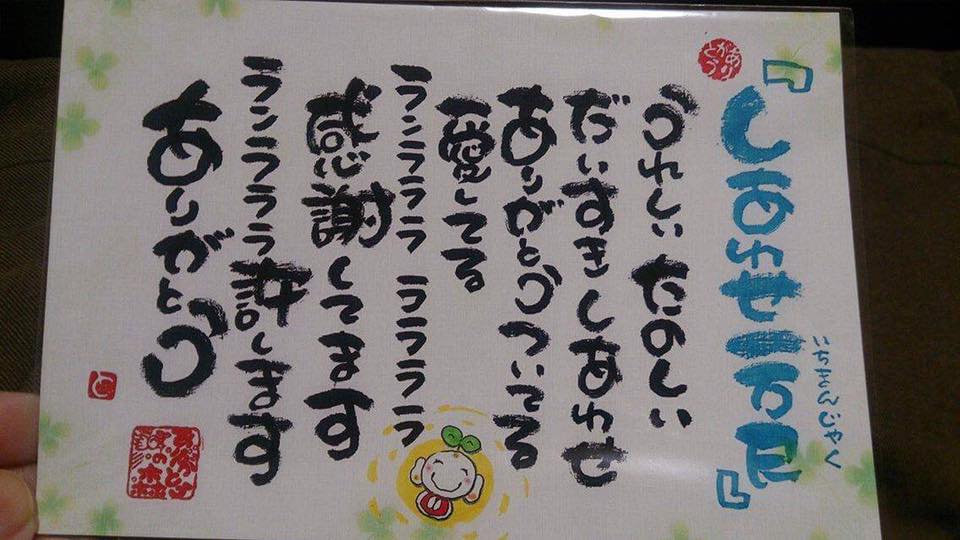 『しあわせ一万尺』
いちまんじゃく
ありがとう
うれしい たのしい
だいすきしあわせ
ありがとうついてる
愛してる
ランラララ ラララララ
感謝してます
ランラララ許します
ありがとう